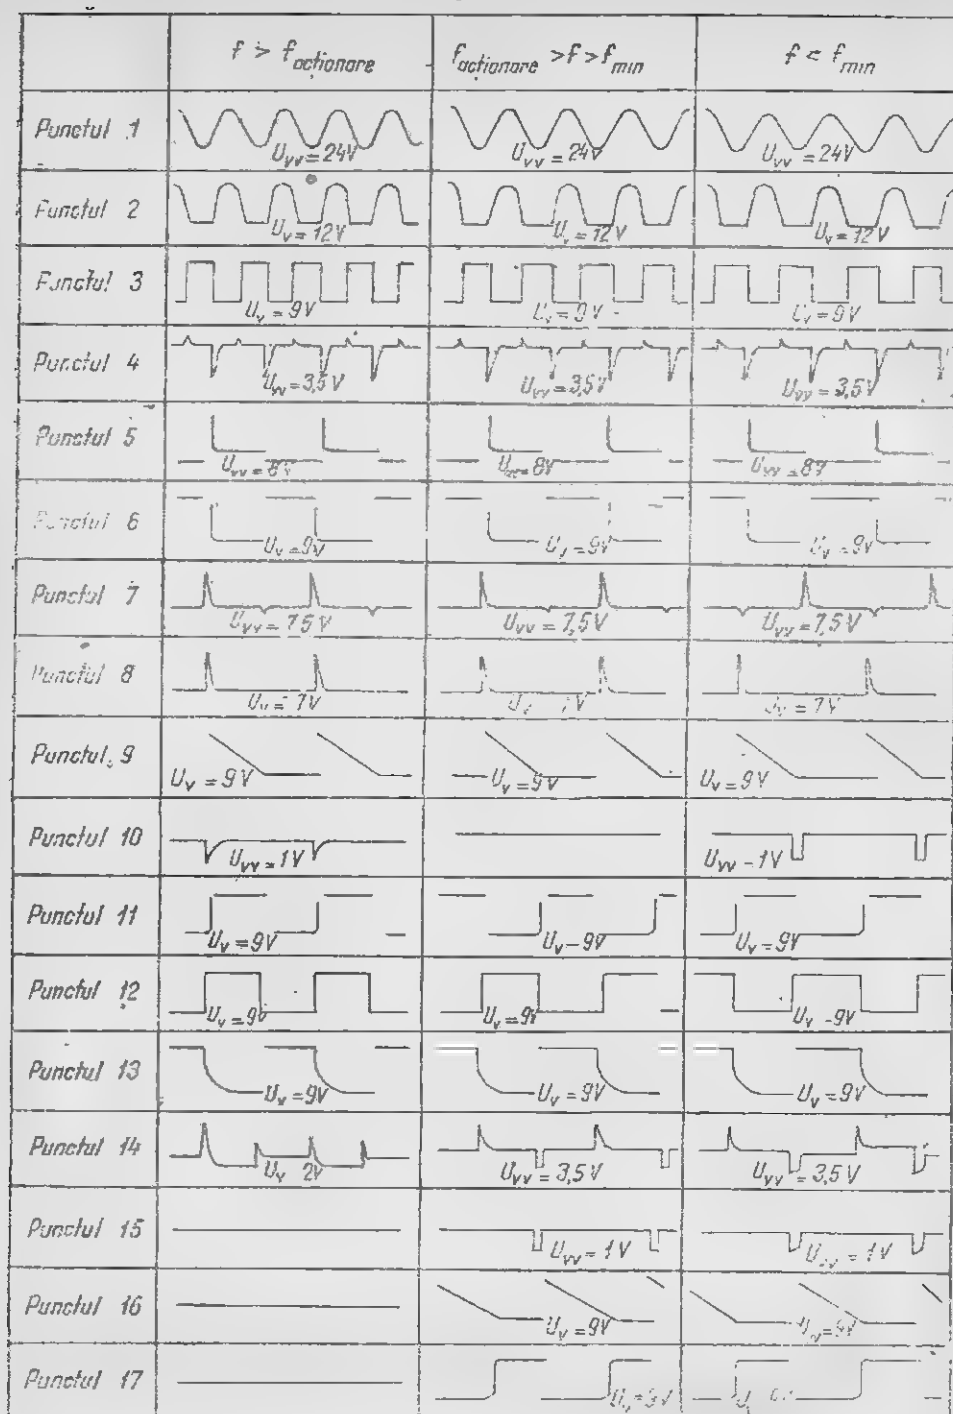 f > f acționare
f acționare > f > f min
f < f min
Punctul 1
U vv = 24V
U vv = 24V
U vv = 24V
Punctul 2
U v = 12V
U v = 12V
U v = 12V
Punctul 3
U v = 9V
U v = 9V
U v = 9V
Punctul 4
U vv = 3,5V
U vv = 3,5V
U vv = 3,5V
Punctul 5
U vv = 8V
U vv = 8V
U vv = 8V
Punctul 6
U v = 9V
U v = 9V
U v = 9V
Punctul 7
U vv = 7,5V
U vv = 7,5V
U vv = 7,5V
Punctul 8
U v = 7V
7V
U v = 7V
Punctul 9
U v = 9V
U v = 9V
U v = 9V
Punctul 10
U vv = 1V
U vv - 1V
Punctul 11
U v = 9V
U v - 9V
U v = 9V
Punctul 12
U v = 9V
U v = 9V
U v - 9V
Punctul 13
U v = 9V
U v = 9V
U v = 9V
Punctul 14
U v 2V
U vv = 3,5V
U vv = 3,5V
Punctul 15
U vv = 1V
U vv = 1V
Punctul 16
U v = 9V
U v = 9V
Punctul 17
U v = 9V